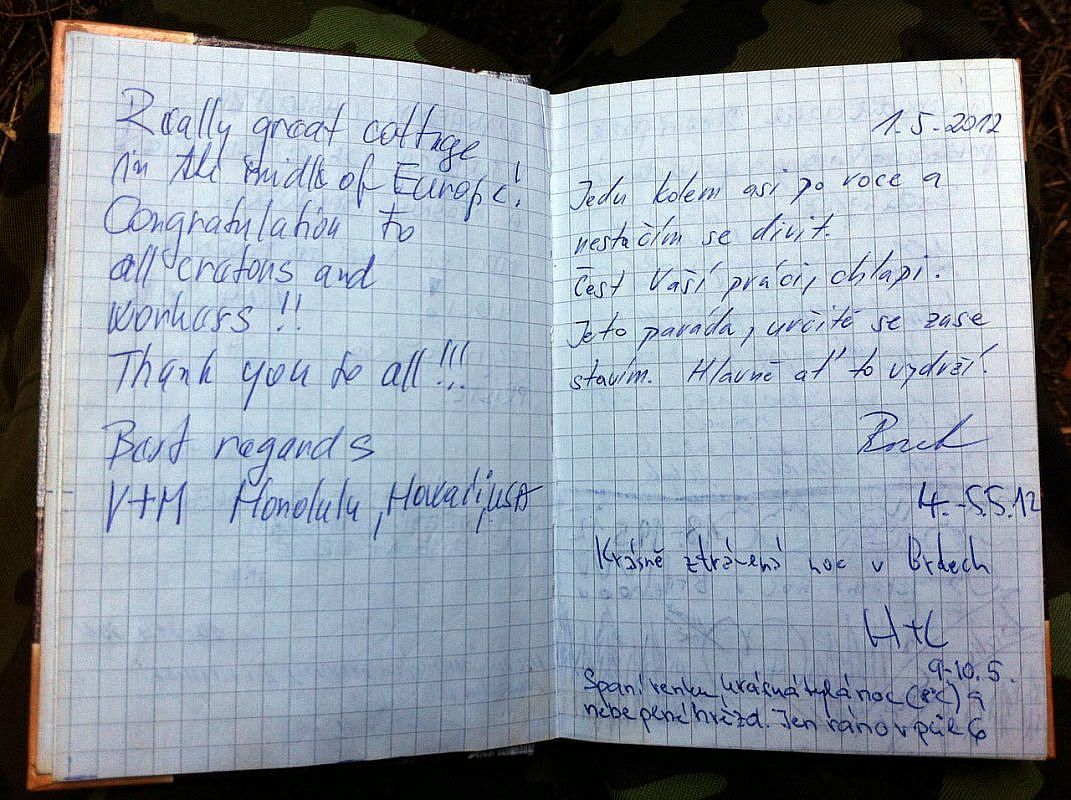 Really great cottage
in the midle of Europe!
Congratulation to
all creators and
workers !!
Thank you to all !!!
Best regards
V+M Honolulu, Hawaii, USA
1.5.2012
Jedu kolem asi po roce a
nestačím se divit.
Čest Vaší práci, chlapi.
Jeto paráda, určitě se zase
stavím. Hlavně ať to vydrží!
4.-5.5.12
Krásně ztrávená noc v Brdech
H+L
9-10.5.
Spaní venku, krásná tylá noc (8°C) a
nebe plné hvězd. Jen ráno v půl 6